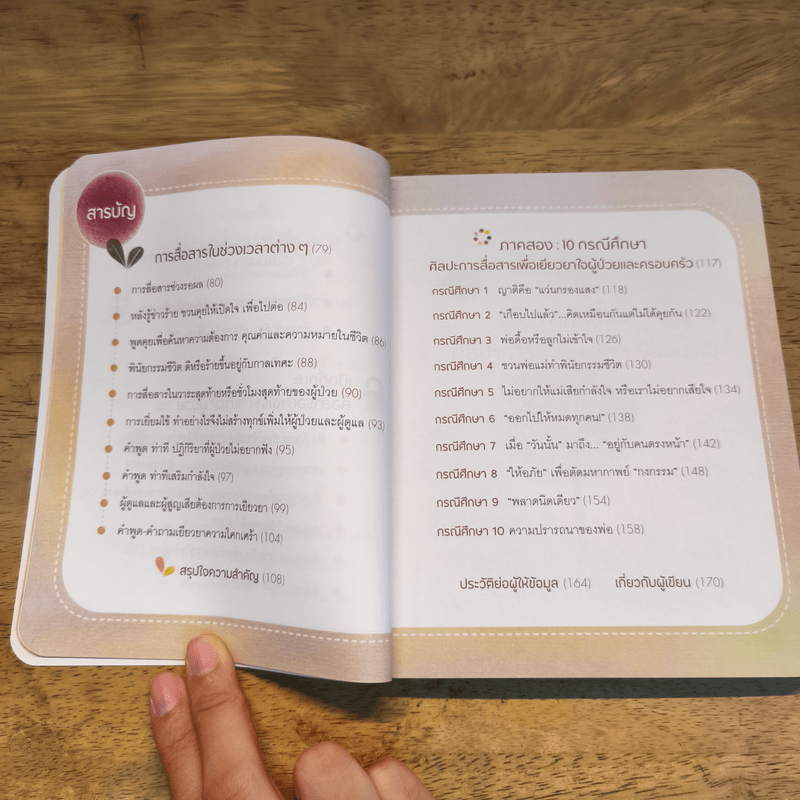 สารบัญ
การสื่อสารในช่วงเวลาต่าง ๆ (79)
การสื่อสารช่วงรอผล (80)
หลังรู้ข่าวร้าย ชวนคุยให้เปิดใจ เพื่อไปต่อ (84)
พูดคุยเพื่อค้นหาความต้องการ คุณค่าและความหมายในชีวิต (86)
พินัยกรรมชีวิต ดีหรือร้ายขึ้นอยู่กับกาลเทศะ (88)
การสื่อสารในวาระสุดท้ายหรือชั่วโมงสุดท้ายของผู้ป่วย (90)
การเยี่ยมไข้ ทำอย่างไรจึงไม่สร้างทุกข์เพิ่มให้ผู้ป่วยและผู้ดูแล (93)
คำพูด ท่าที ปฏิกิริยาที่ผู้ป่วยไม่อยากฟัง (95)
คำพูด ท่าทีเสริมกำลังใจ (97)
ผู้ดูแลและผู้สูญเสียต้องการการเยียวยา (99)
คำพูด-คำถามเยียวยาความโศกเศร้า (104)
สรุปใจความสำคัญ (108)
ภาคสอง : 10 กรณีศึกษา
ศิลปะการสื่อสารเพื่อเยียวยาใจผู้ป่วยและครอบครัว (117)
กรณีศึกษา 1 ญาติคือ "แว่นกรองแสง" (118)
กรณีศึกษา 2 "เกือบไปแล้ว"...คิดเหมือนกันแต่ไม่ได้คุยกัน (122)
กรณีศึกษา 3 พ่อดื้อหรือลูกไม่เข้าใจ (126)
กรณีศึกษา 4 ชวนพ่อแม่ทำพินัยกรรมชีวิต (130)
กรณีศึกษา 5 ไม่อยากให้แม่เสียกำลังใจ หรือเราไม่อยากเสียใจ (134)
กรณีศึกษา 6 "ออกไปให้หมดทุกคน!" (138)
กรณีศึกษา 7 เมื่อ "วันนั้น" มาถึง... "อยู่กับคนตรงหน้า" (142)
กรณีศึกษา 8 "ให้อภัย" เพื่อตัดมหากาพย์ "กงกรรม" (148)
กรณีศึกษา 9 "พลาดนิดเดียว" (154)
กรณีศึกษา 10 ความปรารถนาของพ่อ (158)
ประวัติย่อผู้ให้ข้อมูล (164) เกี่ยวกับผู้เขียน (170)